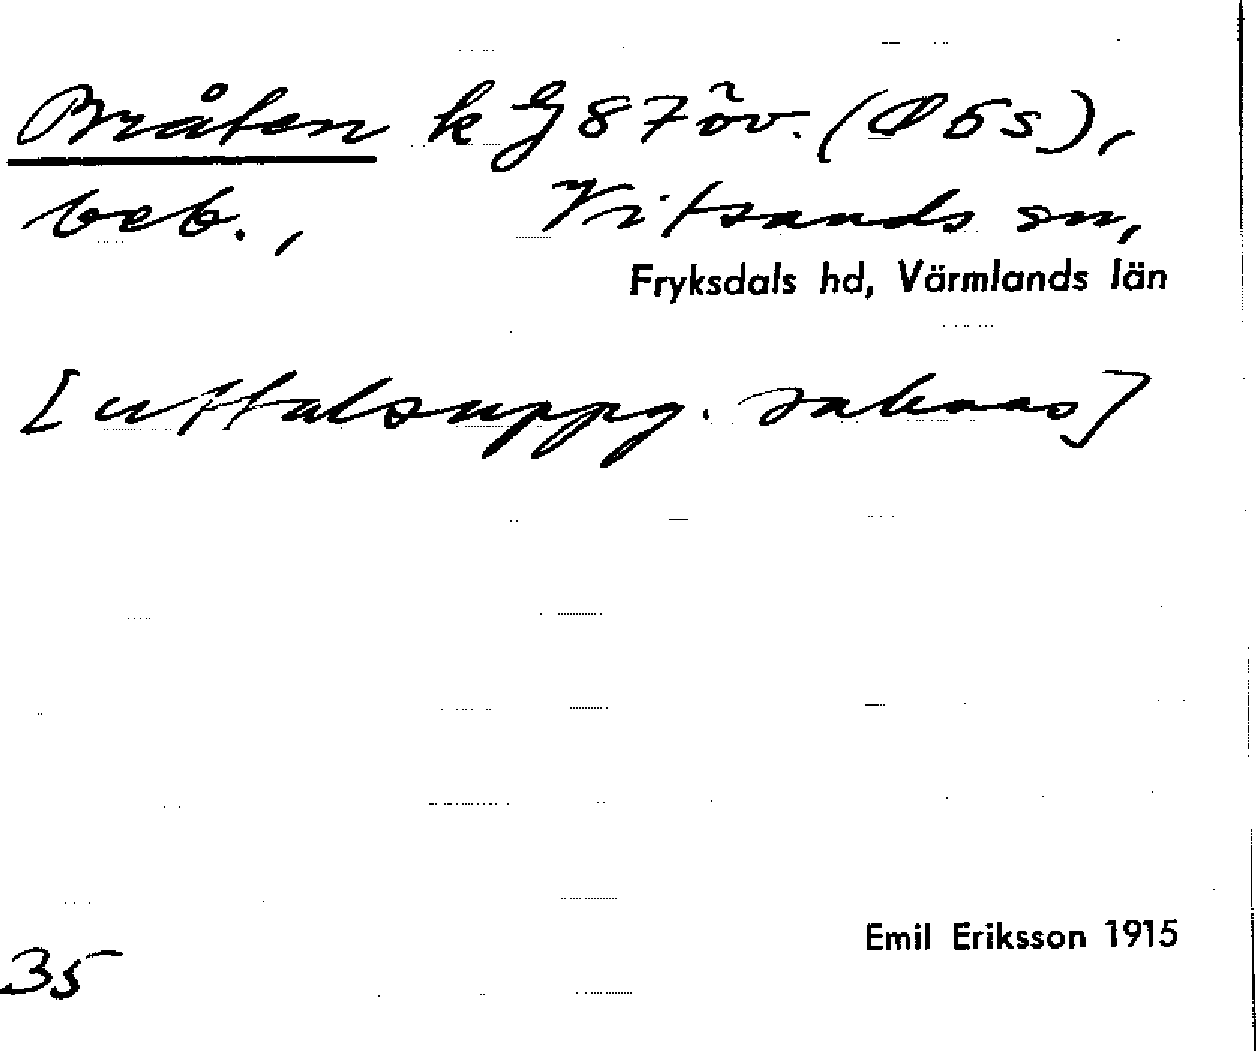 Bråten k G 87 öv. (D 5 s),
beb., Vitsands sn,
Fryksdals hd, Värmlands län
[uttalsuppg. saknas]
Emil Eriksson 1915
35